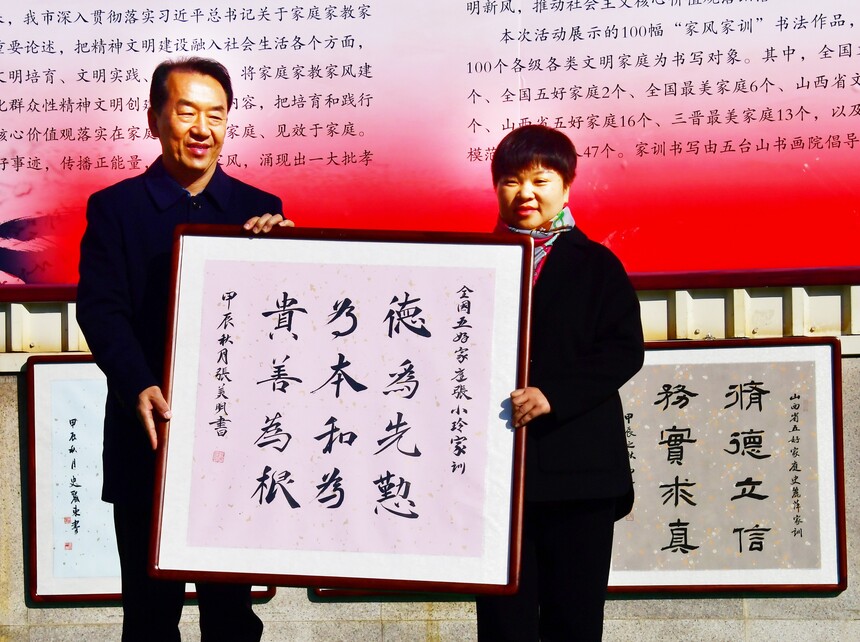 我市深入贯彻落实习近平总书记关于家庭家教家
重要论述，把精神文明建设融入社会生活各个方面，
文明培育、文明实践、
将家庭家教家风建
化群众性精神文明创
内容，把培育和践行
核心价值观落实在家
家庭、见效于家庭。
好事迹，传播正能量，
风，涌现出一大批孝
明新风，推动社会主义核心价值观落
本次活动展示的100幅“家风家训”书法作品，
100个各级各类文明家庭为书写对象。其中，全国
个、全国五好家庭2个、全国最美家庭6个、山西省文
个、山西省五好家庭16个、三晋最美家庭13个，以及
模范
人47个。家训书写由五台山书画院倡导
全国五好家庭張小玲家訓
德爲先懃
為本和為
貴善為根
甲辰秋月張美凤書
山西省五好家庭史麗萍家訓
脩德立信
務實求真
甲辰之秋
甲辰秋月史